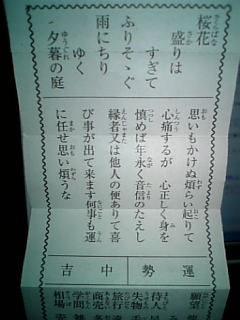 桜花
盛りは
すぎて
ふりそゝぐ
雨にちり
ゆく
夕暮の庭
思いもかけぬ煩らい起りて
心痛するが 心正しく身を
慎めば年永く音信のたえし
縁者又は他人の便ありて喜
び事が出て来ます何事も運
に任せ思い煩うな
運勢 中吉
願望
待人
失物
旅行
商売
学問
相場